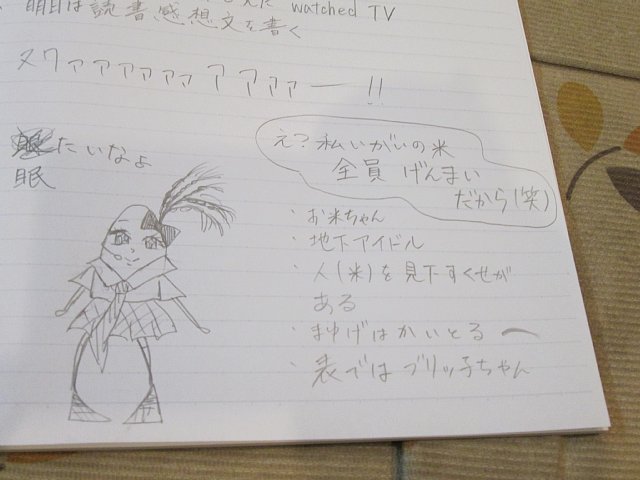 明日は読書感想文を書く watched TV
ヌワァァァァァァァァァー!!
たいなょ
眠
え?私いがいの米
全員げんまい
だから(笑)
・お米ちゃん
・地下アイドル
・人(米)を見下すくせが
ある
・まゆげはかいとる
・表ではブリッ子ちゃん